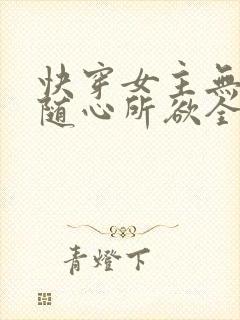 快穿女主無
随心所欲全
青燈下